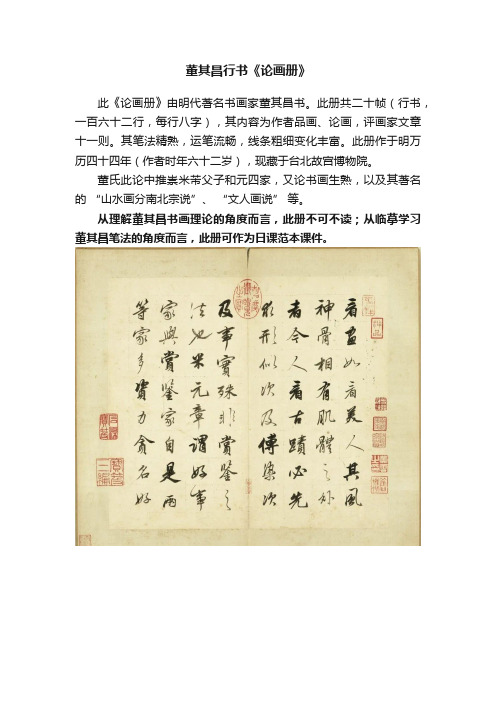 董其昌行书《论画册》
此《论画册》由明代著名书画家董其昌书。此册共二十帧（行书，
一百六十二行，每行八字），其内容为作者品画、论画，评画家文章
十一则。其笔法精熟，运笔流畅，线条粗细变化丰富。此册作于明万
历四十四年（作者时年六十二岁），现藏于台北故宫博物院。
董氏此论中推崇米芾父子和元四家，又论书画生熟，以及其著名
的 “山水画分南北宗说”、 “文人画说” 等。
从理解董其昌书画理论的角度而言，此册不可不读；从临摹学习
董其昌笔法的角度而言，此册可作为日课范本课件。
看画如看美人其風
神骨相有肌體之外
者今人看古蹟必先
求形似次及傅染次
及事實殊非賞鑒之
法也米元章謂好事
家與賞鑒家自是兩
等家多資力貪名好